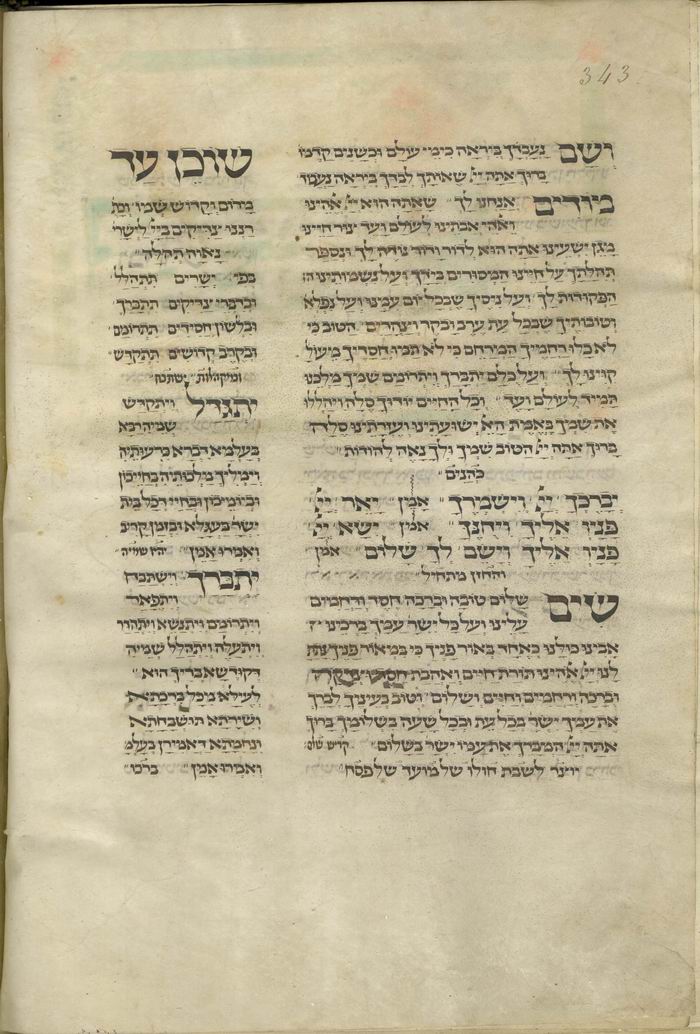 343
ושם נעבדך ביראה כימי עולם וכשנים קדמו
ברוך אתה ייי שאותך לבדך ביראה נעבוד
מודים אנחנו לך שאתה הוא ייי אהינו
ואהי אבתינו לעולם ועד צור חיינו
מגן ישעינו אתה הוא לדור ודור נודה לך ונספר
תהלתך על חיינו המסורים בידך ועל נשמותינו ה
הפקודות לך ועל ניסיך שבכל יום עמנו ועל נפלא
וטובותיך שבכל עת ערב ובקר וצהרים הטוב כי
לא כלו רחמיך המרחם כי לא תמו חסדיך מעול
קוינו לך ועל כלם יתברך ויתרומם שמך מלכנו
תמיד לעולם ועד וכל החיים יודוך סלה ויהללו
את שמיך באמת הא ישועתינו ועזרתינו סלה
ברוך אתה ייי הטוב שמיך ולך נאה להודות
כהנים
יברכך ייי וישמרך אמן יאר ייי
פניו אליך ויחנך אמן ישא ייי
פניו אליך וישם לך שלום אמן
והחזן מתחיל
שים שלום טובה וברכה חסד ורחמים
עלינו ועל כל ישר עמך ברכינו
אבינו כולנו כאחד באור פניך כי במאור פניך נתת
לנו ייי אהינו תורת חיים ואהבת חסד
וברכה ורחמים וחיים ושלום וטוב בעיניך לברך
את עמיך ישר בכל עת ובכל שעה בשלומך ברוך
אתה ייי המברך את עמו ישר בשלום קדיש שלום
יוצר לשבת חולו של מועד של פסח
שוכן עד
מרום וקדוש שמו וכת
רננו צדיקים בייי לישרי
נאוה תהלה
בפי ישרים תתהלל
וכדברי צדיקים תתברך
ובלשון חסידים תתרומם
ובקרב קדושים תתקדש
ומקהלות ישתבח
יתגדל ויתקדש
שמיה רבא
בעלמא דברא כרעותיה
וימליך מלכותיה בחייכון
וביומיכון ובחיי דכל בית
ישר בעגלא ובזמן קריב
ואמרו אמן יהא שמיה
יתברך וישתבח
ויתפאר
ויתרומם ויתנשא ויתהדר
ויתעלה ויתהלל שמיה
דקודשא בריך הוא
לעילא מכל ברכתא
ושירתא תושבחתא
ונחמתא דאמירן בעלמ
ואמרו אמן ברכו